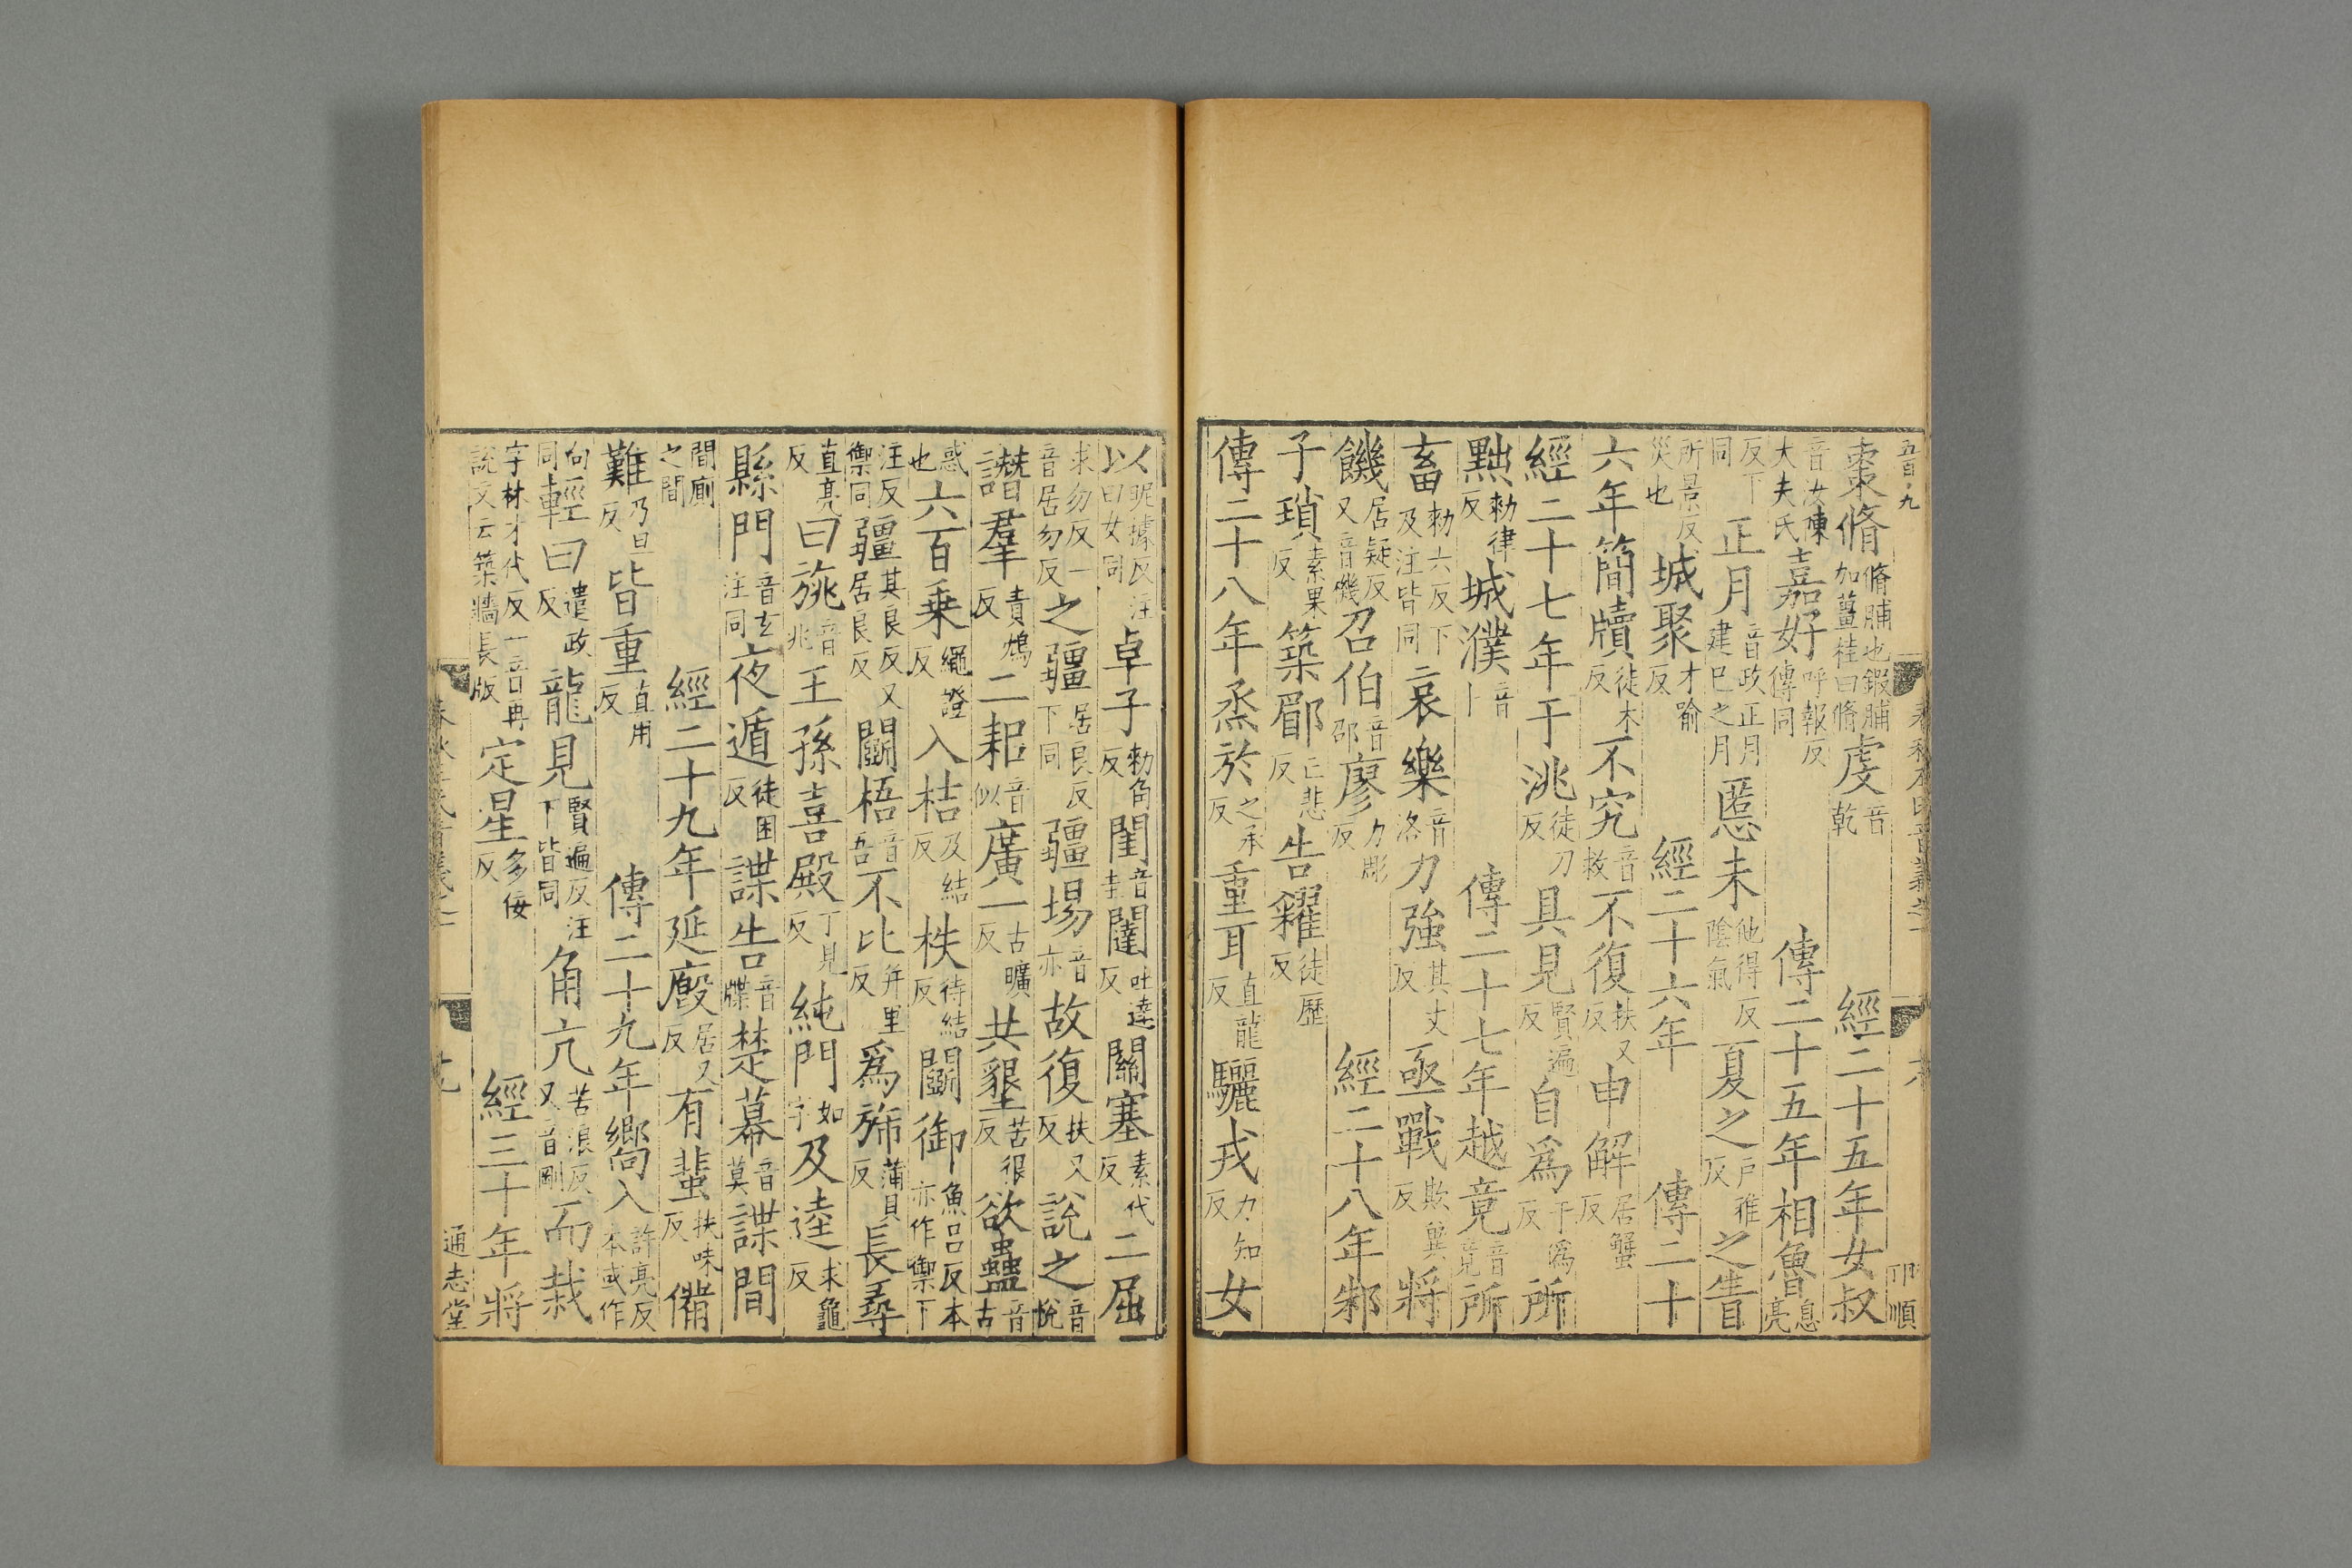 五百九
棗脩脩脯也鍜脯加薑桂曰脩虔音乾 經二十五年女叔
音汝陳大夫氏嘉好呼報反傳同 傳二十五年相魯息亮
反下同正月音政正月建巳之月慝未他得反陰氣夏之戶雅反之眚
所景反災也城聚才喻反 經二十六年 傳二十
六年簡牘徒木反不究音救不復扶又反申解居蟹反
經二十七年于洮徒刀反具見賢遍反自爲于僞反所
黜勑律反城濮音卜 傳二十七年越竟音竟所
畜勑六反下及注皆同哀樂音洛力強其丈反亟戰欺兾反將
饑居疑反又音機召伯音邵廖力彫反 經二十八年邾
子瑣素果反築郿亡悲反告糴徒歷反
傳二十八年烝於之承反重耳直龍反驪戎力知反女
以昵據反注曰女同卓子勑角反閨音圭闥吐達反關塞素代反二屈
求勿反一音居勿反之疆居良反下同疆場音亦故復扶又反說之音悅
譖羣責鴆反二耜音似廣一古曠反共墾苦很反欲蠱音古
惑也六百乗繩證反入桔及結反柣待結反鬭御魚呂反本亦作禦下
注反禦同疆其良反又居良反鬭梧音吾不比并里反爲旆蒲貝反長尋
直亮反曰旐音兆王孫喜殿丁見反純門如字及逵求龜反
縣門音玄注同夜遁徒困反諜告音牒楚幕音莫諜間
間厠之間 經二十九年延廏居又反有蜚扶味反備
難乃旦反皆重直用反 傳二十九年嚮入許亮反本或作
向同輕曰遣政反龍見賢遍反注下皆同角亢苦浪反又音剛而栽
字林才代反一音再說文云築牆長版定星多佞反 經三十年將
通志堂